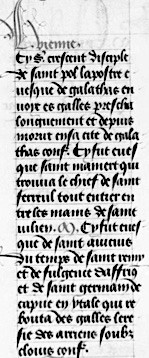 Vienne.
Cy s. crescent disciple
de saint pol lapostre e
uesque de galathas en
uoye es galles prescha
longuement et depuis
morut en sa cite de gala
thas conf. Cy fut eues
que saint mamert qui
trouua le chief de saint
ferreul tout entier en
tre les mains de saint
iulien. Cy fut eues
que de saint auicus
du temps de saint remy
et de fulgence daffriq
et de saint germain de
capue en ytale qui re
bouta des galles lere
sie des arriens soubz
clouis conf.